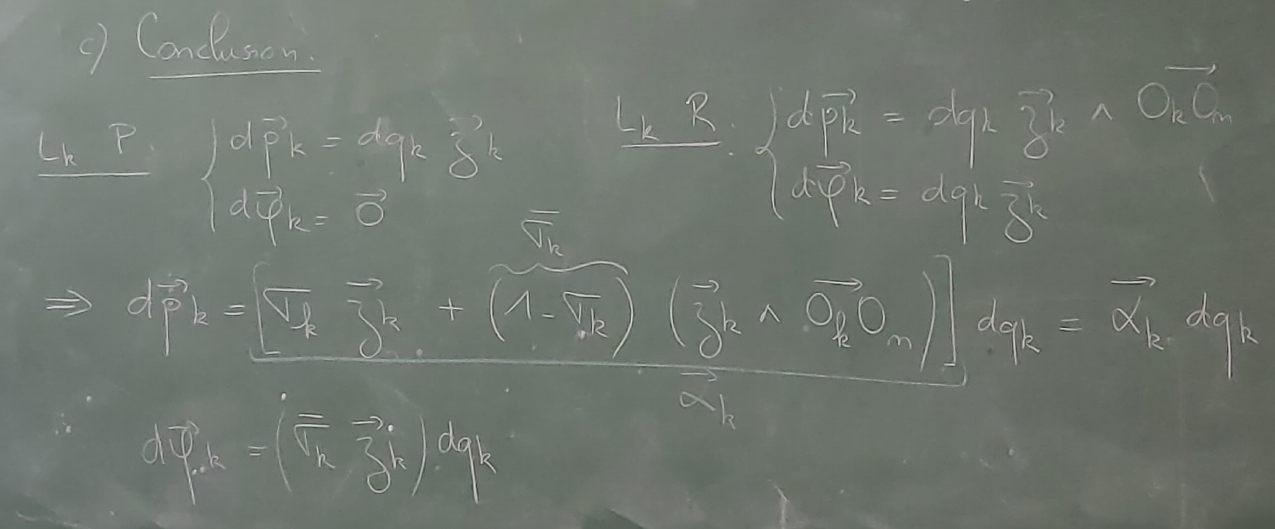 c) Conclusion.
L_k P. { d\vec{p}_k = dq_k \vec{z}_k
d\vec{φ}_k = \vec{0}
L_k R. { d\vec{p}_k = dq_k \vec{z}_k ∧ \vec{O_kO_n}
d\vec{φ}_k = dq_k \vec{z}_k
\bar{σ}_k
⇒ d\vec{p}_k = [σ_k \vec{z}_k + (1 - σ_k) (\vec{z}_k ∧ \vec{O_kO_n})] dq_k = \vec{α}_k dq_k
\vec{α}_k
d\vec{φ}_k = (\bar{σ}_k \vec{z}_k) dq_k